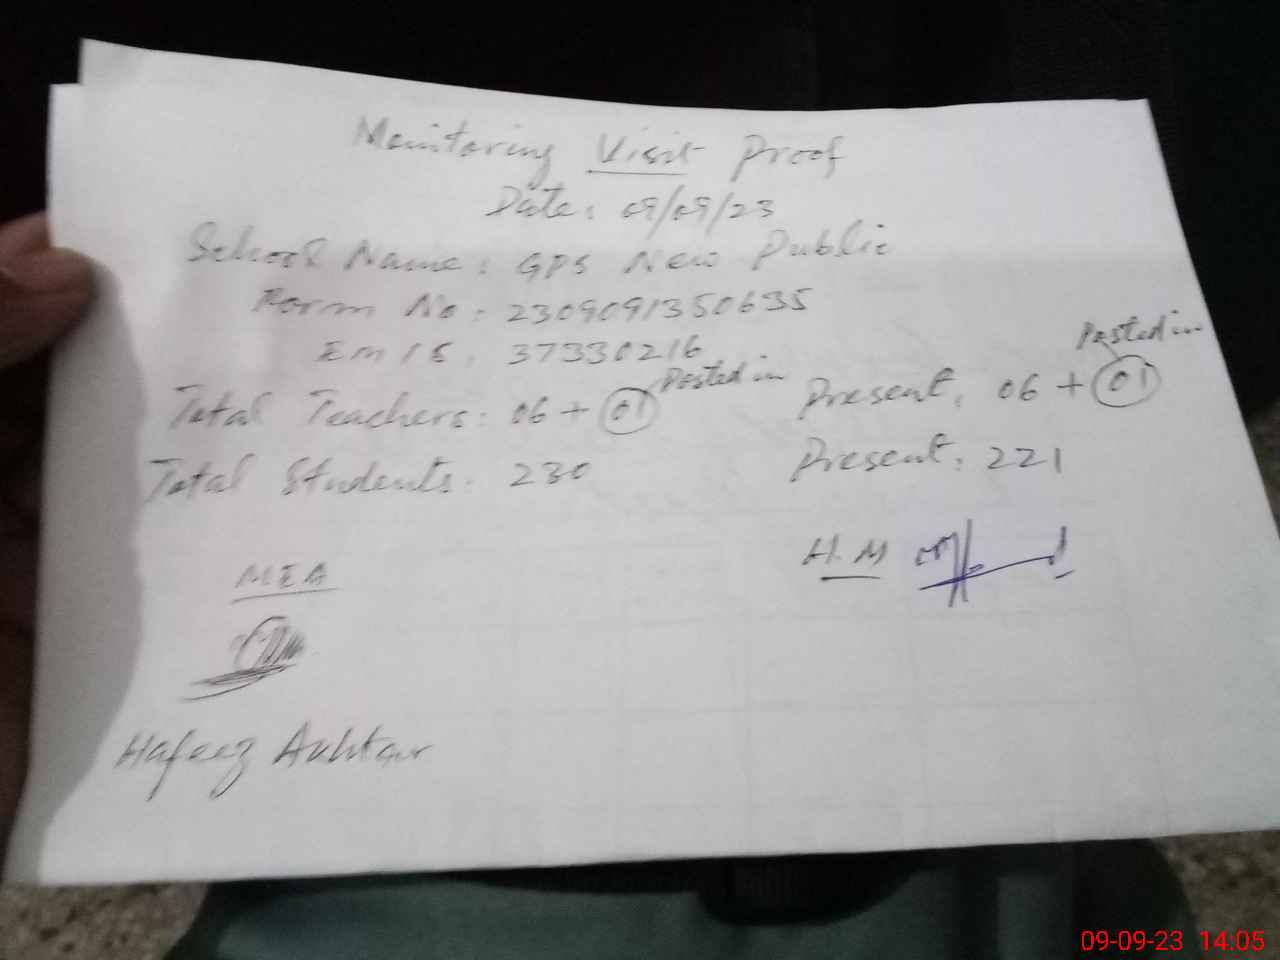 Monitoring Visit Proof
Date: 09/09/23
School Name: GPS New Public
Form No: 2309091350635
EMIS: 37330216
Total Teachers: 06 + 01 Posted in
Present: 06 + 01 Posted in
Total Students: 230
Present: 221
MEA
H.M
Hafeez Akhtar
09-09-23 14:05